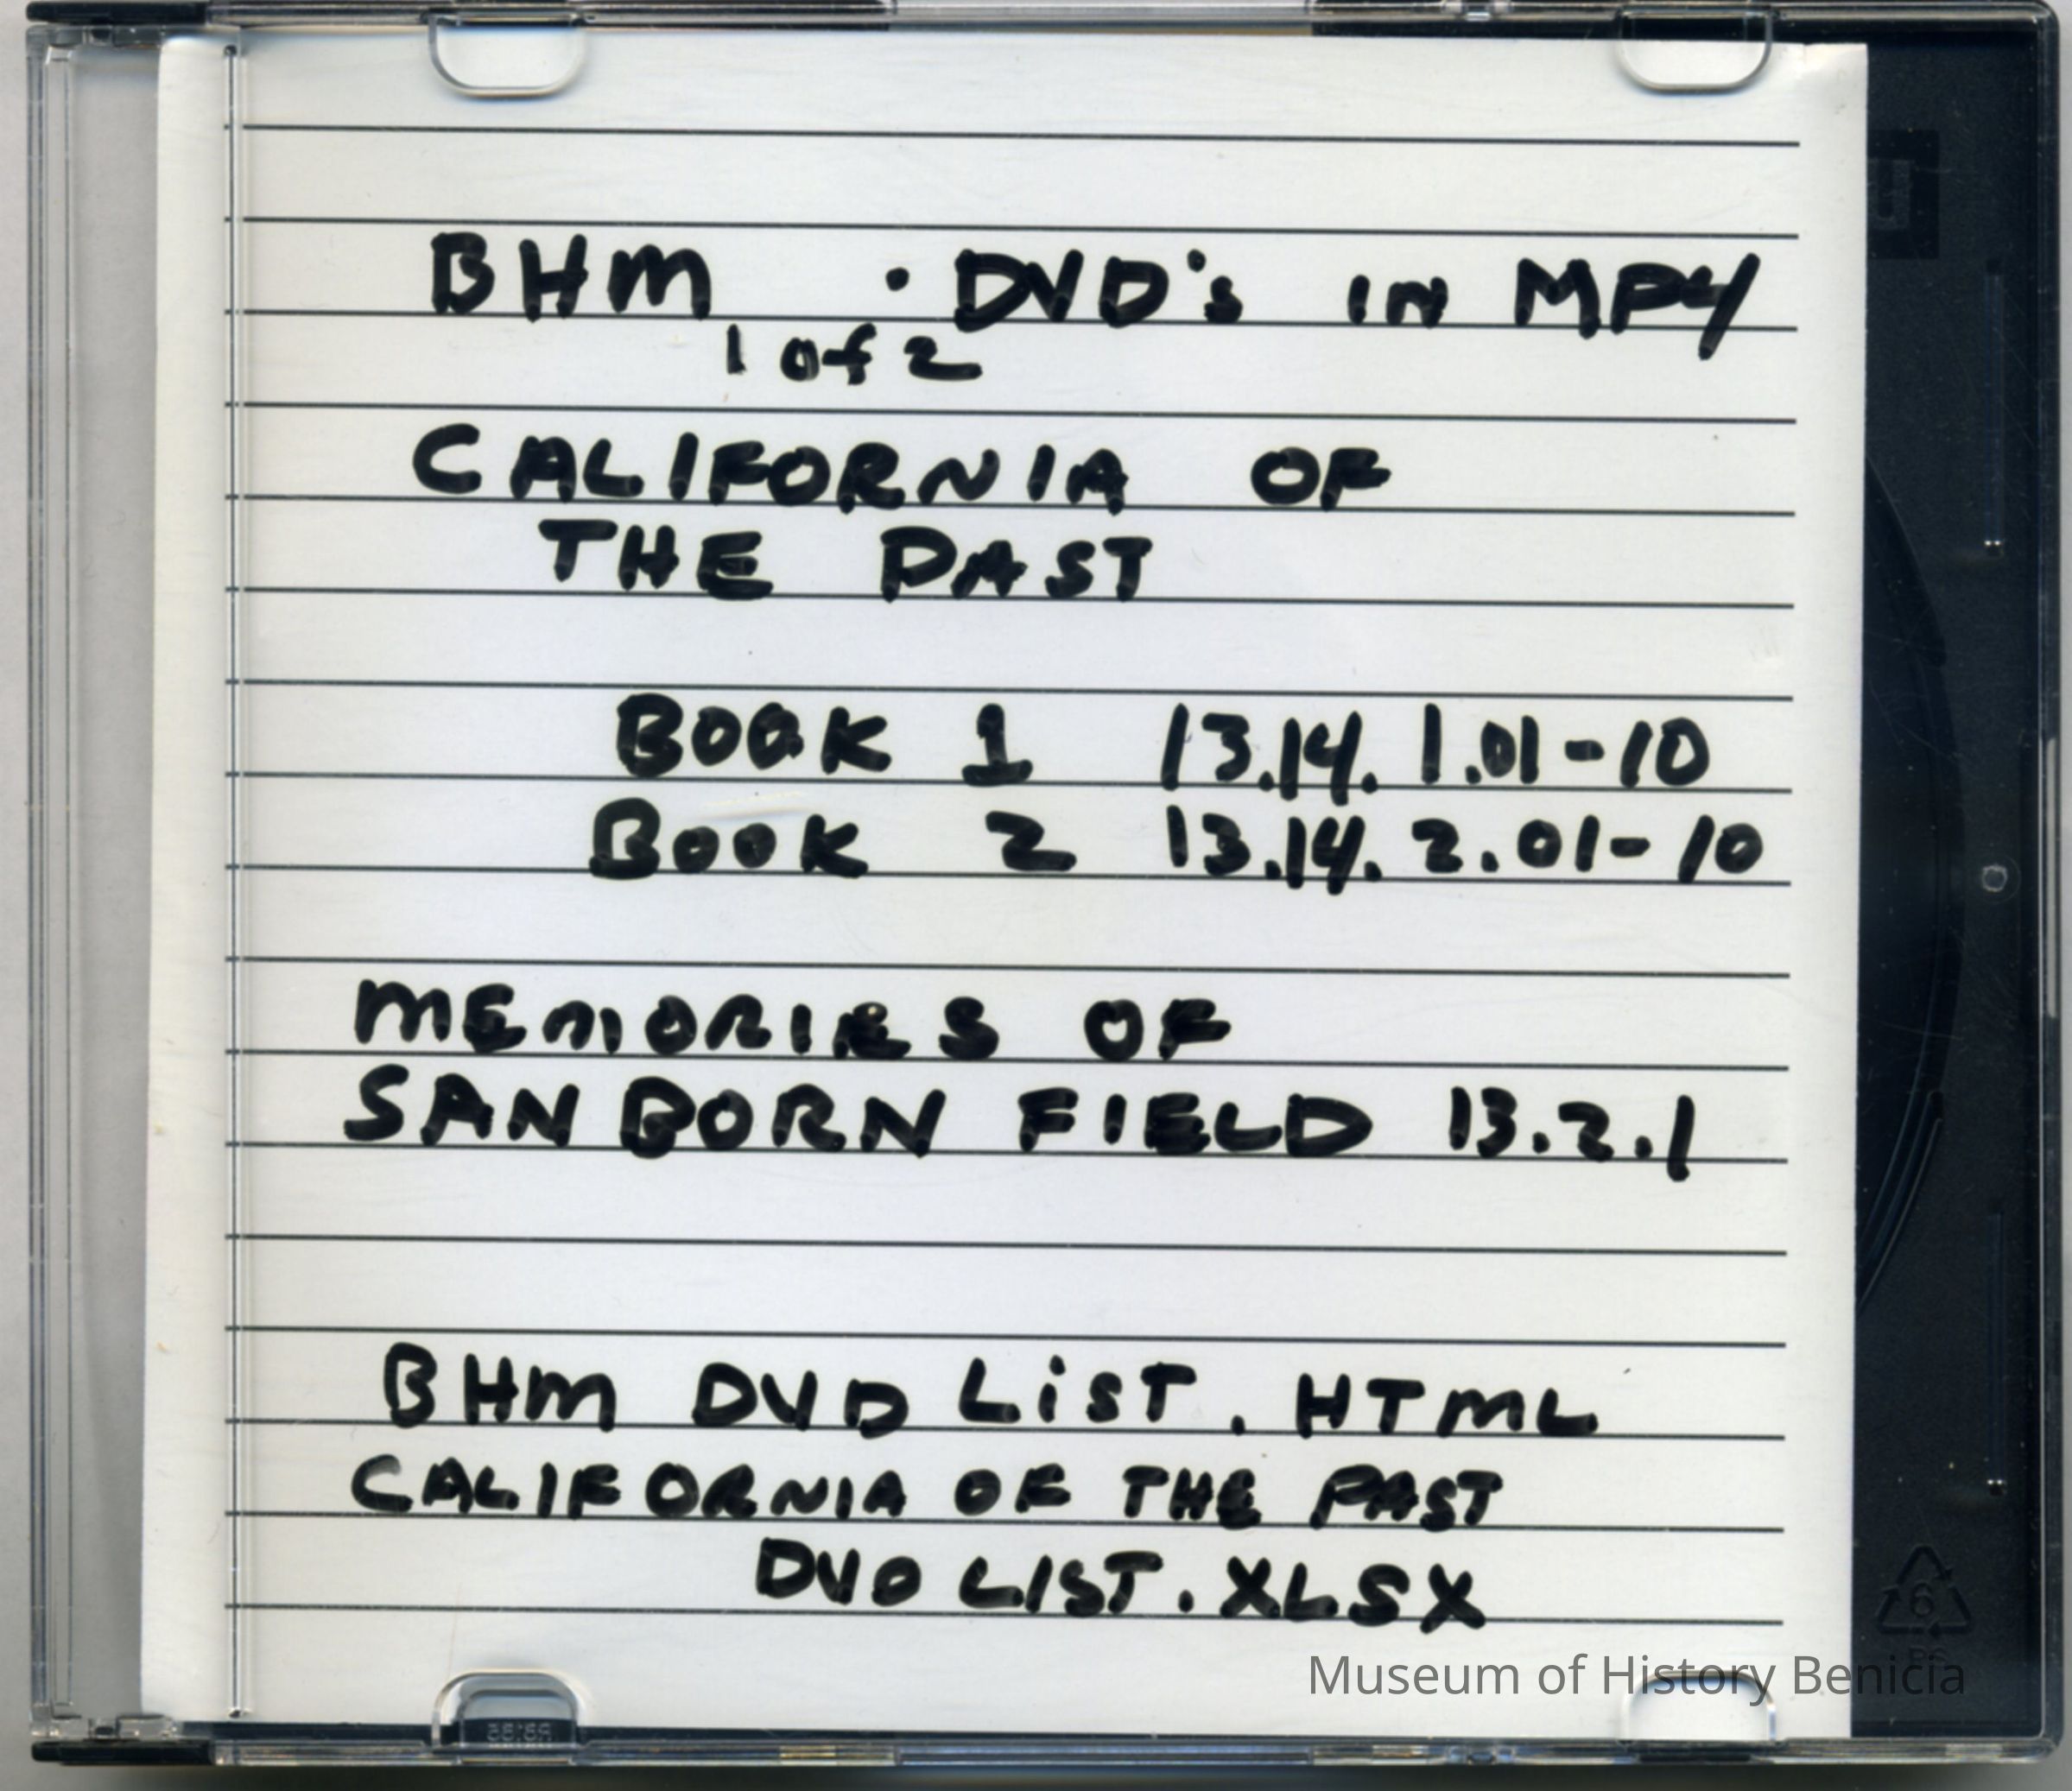 BHM . DVD's IN MP4
1 of 2
CALIFORNIA OF
THE PAST
BOOK 1 13.14.1.01-10
BOOK 2 13.14.2.01-10
MEMORIES OF
SANBORN FIELD 13.2.1
BHM DVD LiST.HTML
CALIFORNIA OF THE PAST
DVD LIST.XLSX
Museum of History Benicia
6
PS